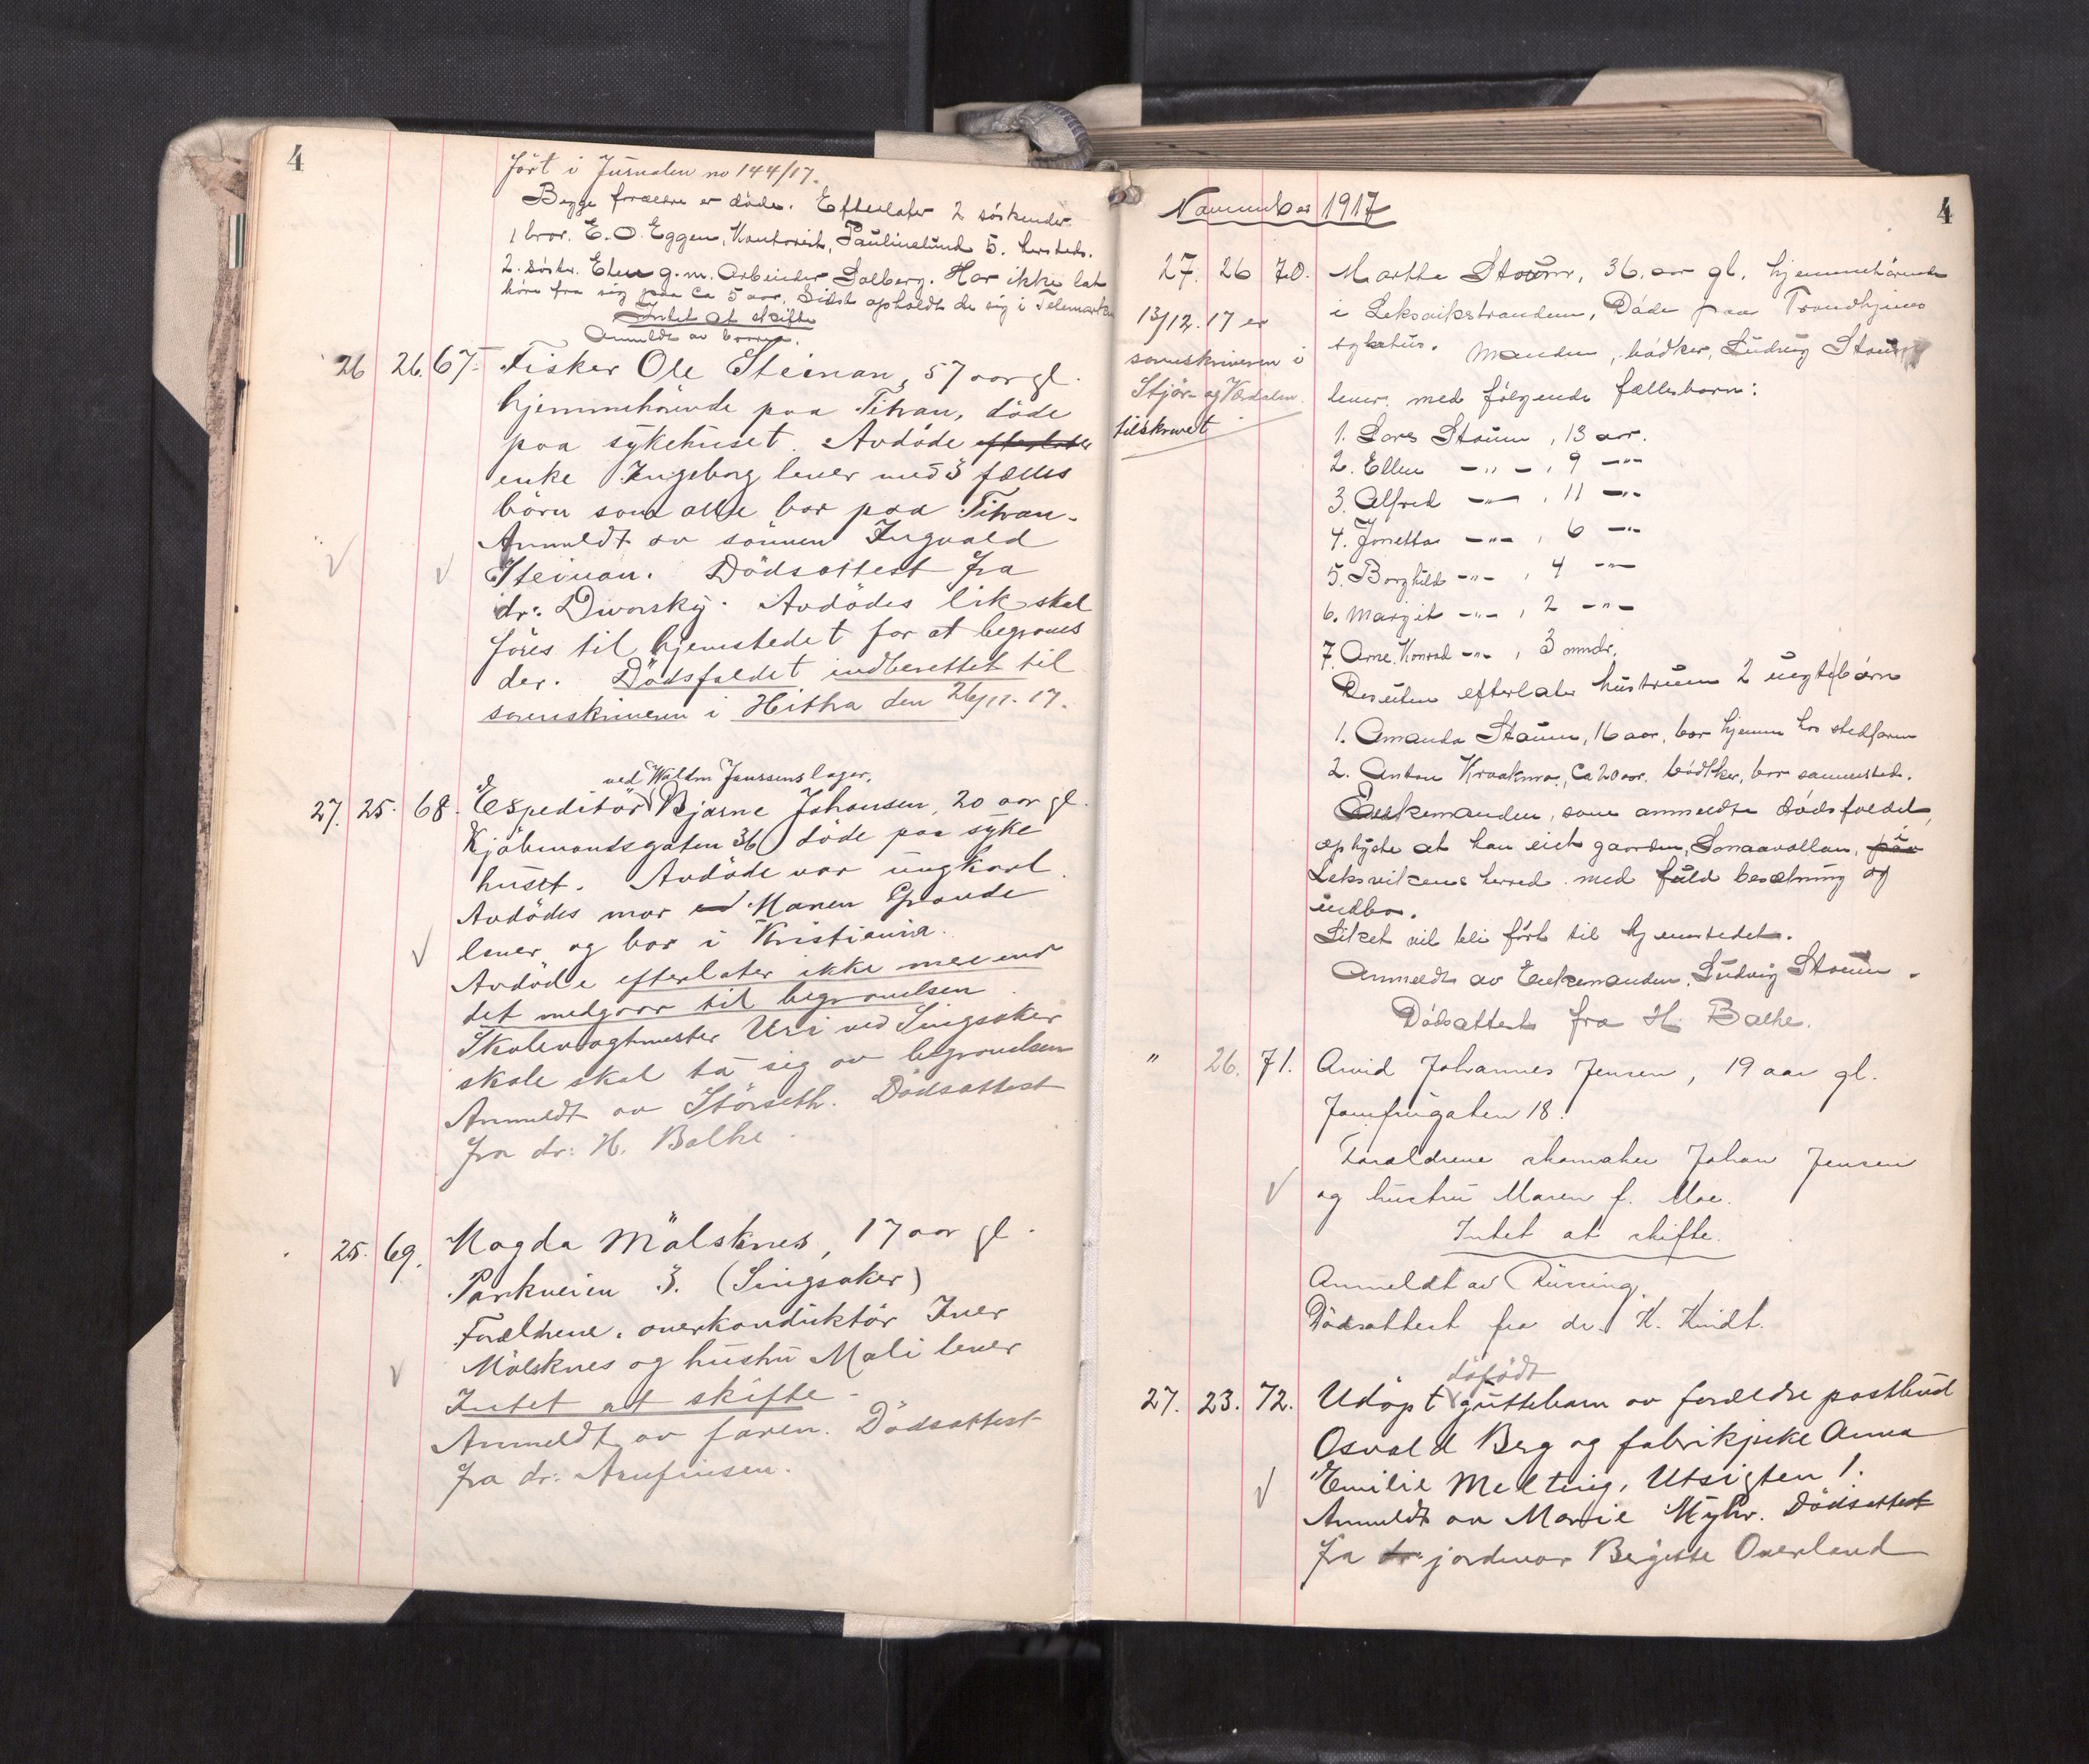 4
Ført i Jurnalen no 144/17.
Begge forældre er døde. Efterlater 2 søskender
1 bror. E. O. Eggen, Kontorist, Paulinelund 5. hersteds.
2. Søster. Elen g. m. Arbeider Solberg. Har ikke lat
høre fra sig paa ca 5 aar. Sidst opholdt de sig i Telemarken
Intet at skifte
Anmeldt av broren.
26 26. 67. Fisker Ole Steinan, 57 aar gl.
hjemmehørende paa Titran, døde
paa sykehuset. Avdøde efterlater
enke Ingeborg lever med 3 fælles
børn som alle bor paa Titran.
Anmeldt av sønnen Ingvald
Steinan. Dødsattest fra
dr: Dworsky. Avdødes lik skal
føres til hjemstedet for at begraves
der. Dødsfaldet indberettet til
sorenskriveren i Hitra den 26/11. 17.
ved Waldm Janssens lager.
27. 25. 68. Expeditør Bjarne Johansen, 20 aar gl.
Kjøbmandsgaten 36 døde paa syke
huset. Avdøde var ungkarl.
Avdødes mor Maren Grande
lever og bor i Kristiania.
Avdøde efterlater ikke mer end
det medgaar til begravelsen.
Skolevagtmester Uri ved Singsaker
skole skal ta sig av begravelsen
Anmeldt av Størseth. Dødsattest
fra dr: H. Balke.
25. 69. Magda Mølsknes, 17 aar gl.
Parkveien 3. (Singsaker)
Forældrene, overkonduktør Iver
Mølsknes og hustru Mali lever
Intet at skifte.
Anmeldt av faren. Dødsattest
fra dr: Arnfinsen.
November 1917
4
27. 26 70. Martha Staum, 36 aar gl. hjemmehørende
i Leksvikstranden, Døde paa Trondhjems
sykehus. Manden, bødker, Ludvig Staum
lever med følgende fællesbarn:
13/12. 17 er
sorenskriveren i
Stjør- og Værdalen
tilskrevet
1. Lars Staum, 13 aar.
2. Ellen -"-, 9 -"-
3. Alfred -"-, 11 -"-
4. Jonetta -"-, 6 -"-
5. Borghild -"-, 4 -"-
6. Margit -"-, 2 -"-
7. Arne Konrad -"-, 3 mndr.
Desuten efterlater hustruen 2 uegte børn
1. Amanda Staum, 16 aar, bor hjemme hos stedfaren
2. Anton Kraakmo, ca 20 aar, bødtker, bor sammesteds.
Enkemanden, som anmeldte dødsfaldet,
oplyste at han eiet gaarden, Sonaavollan, paa i
Leksvikens herred med fuld besætning og
indbo.
Liket vil bli ført til hjemstedet.
Anmeldt av Enkemanden, Ludvig Staum.
Dødsattest fra H. Balke.
" 26. 71. Arvid Johannes Jensen, 19 aar gl.
Jomfrugaten 18.
Foraldrene skomaker Johan Jensen
og hustru Maren f. Moe.
Intet at skifte.
Anmeldt av
Dødsattest fra dr. K. Kindt.
døfødt
27. 23. 72. Udøpt guttebarn av forældre postbud
Osvald Berg og fabrikpike Anna
Emilie Melting, Utsigten 1.
Anmeldt av Marie Myhr. Dødsattest
fra dr: jordmor Bergitte Overland